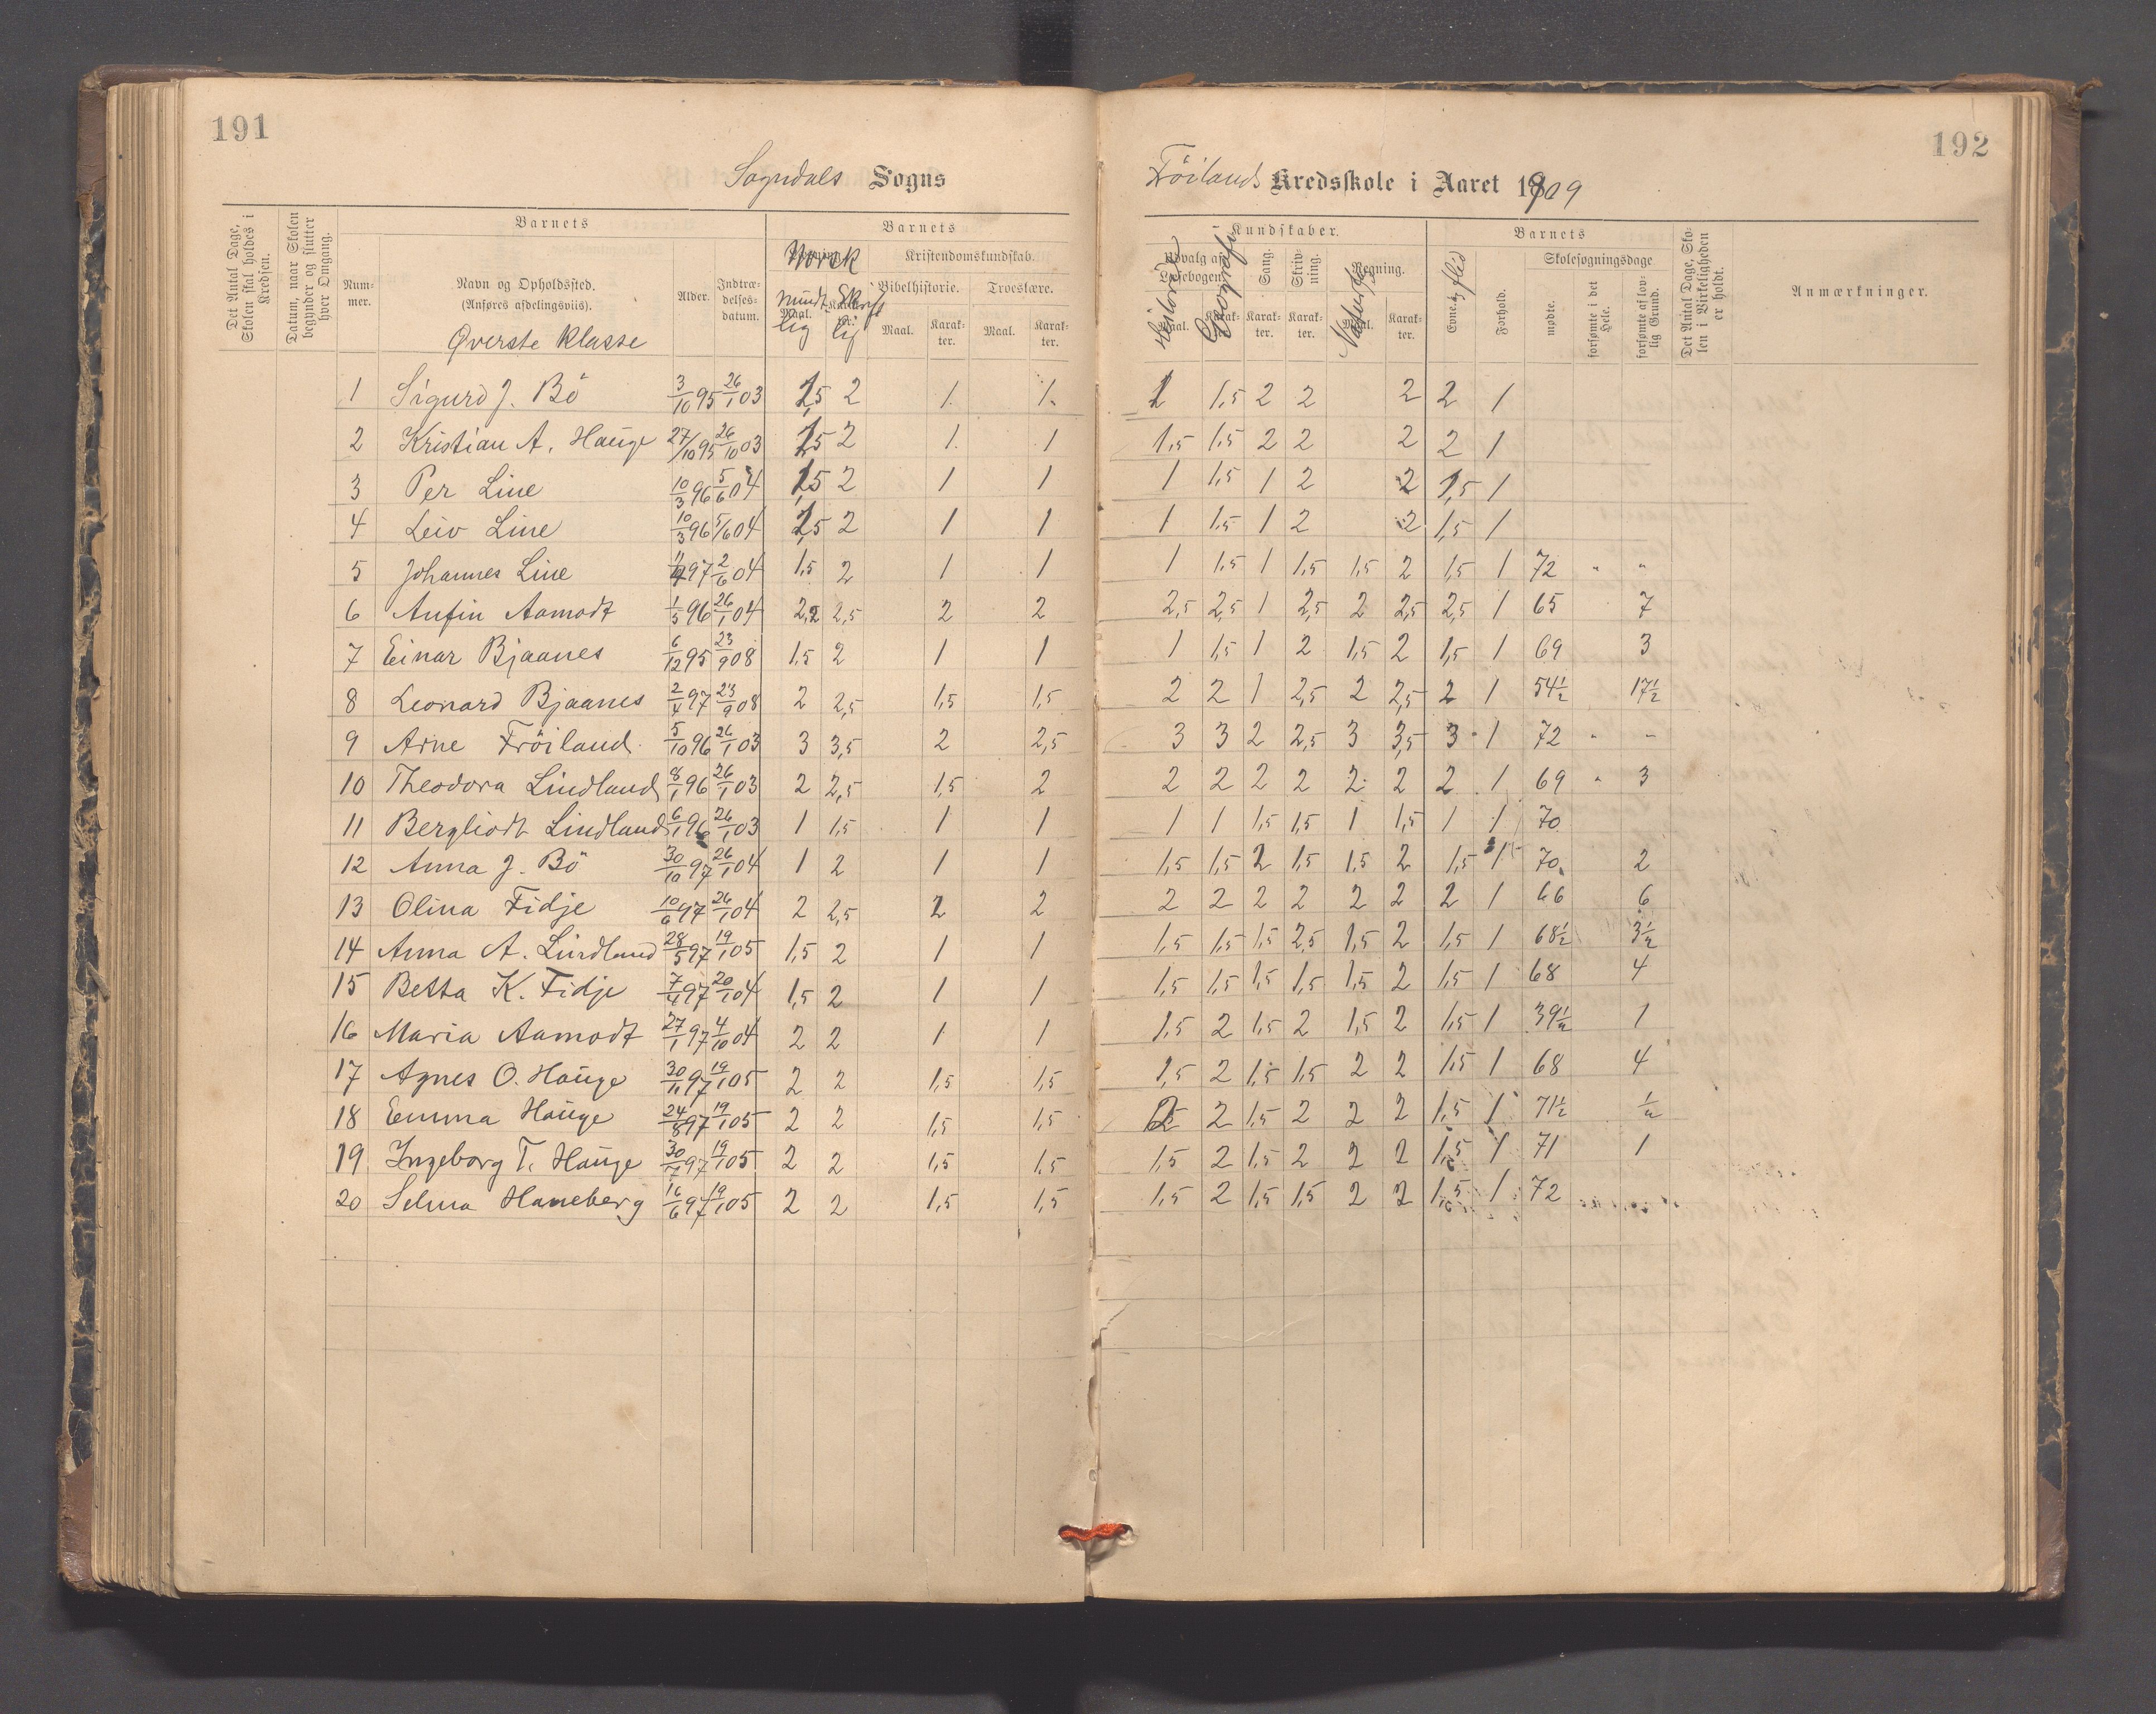 191
192
Sogndals Sogns
Fröilands Kredsskole i Aaret 1909
Det Antal Dage, Skolen skal holdes i Kredsen.
Datum, naar Skolen begynder og slutter hver Omgang.
Barnets
Barnets
Kundskaber.
Barnets
Num-mer.
Navn og Opholdssted.
(Anføres afdelingsviis).
Øverste Klasse
Alder.
Indtræ-delses-datum.
Norsk
mundt-lig
Skrift-lig
Maal.
Kristendomskundskab.
Bibelhistorie.
Troeslære.
Maal.
Karak-ter.
Maal.
Karak-ter.
Udvalg af Læsebogen.
Historie
Geografi
Sang.
Skriv-ning.
Regning.
Maal.
Karak-ter.
Karak-ter.
Karak-ter.
Maal.
Karak-ter.
Evner. flid
Forhold.
Skolesøgningsdage
mødte.
forsømte i det Hele.
forsømte af lov-lig Grund.
Det Antal Dage, Sko-len i Virkeligheden er holdt.
Anmærkninger.
1 Sigurd J. Bö 3/10 95 26/1 03 1,5 2 1 1 1 1,5 2 2 2 2 1
2 Kristian A. Hauge 27/10 95 26/10 03 1,5 2 1 1 1,5 1,5 2 2 2 2 1
3 Per Line 10/3 96 5/6 04 1,5 2 1 1 1 1,5 1 2 2 1,5 1
4 Leiv Line 10/3 96 5/6 04 1,5 2 1 1 1 1,5 1 2 2 1,5 1
5 Johannes Line 97 2/6 04 1,5 2 1 1 1 1,5 1 1,5 1,5 2 1,5 1 72 " "
6 Anfin Aamodt 1/5 96 26/1 04 2,2 2,5 2 2 2,5 2,5 1 2,5 2 2,5 2,5 1 65 7
7 Einar Bjaanes 6/12 95 23/9 08 1,5 2 1 1 1 1,5 1 2 1,5 2 1,5 1 69 3
8 Leonard Bjaanes 2/4 97 23/9 08 2 2,5 1,5 1,5 2 2 1 2,5 2 2,5 2 1 54½ 17½
9 Arne Fröiland 5/10 96 26/1 03 3 3,5 2 2,5 3 3 2 2,5 3 3,5 3 1 72 " "
10 Theodora Lindland 8/1 96 26/1 03 2 2,5 1,5 2 2 2 2 2 2 2 2 1 69 " 3
11 Bergliodt Lindland 6/1 96 26/1 03 1 1,5 1 1 1 1 1,5 1,5 1 1,5 1 1 70
12 Anna J. Bö 30/10 97 26/1 04 1 2 1 1 1,5 1,5 2 1,5 1,5 2 1,5 1 70 2
13 Olina Fidje 10/6 97 26/1 04 2 2,5 2 2 2 2 2 2 2 2 2 1 66 6
14 Anna A. Lindland 28/5 97 19/1 05 1,5 2 1 1 1,5 1,5 1,5 2,5 1,5 2 1,5 1 68½ 3½
15 Betta K. Fidje 7/4 97 20/1 04 1,5 2 1 1 1,5 1,5 1,5 1,5 1,5 2 1,5 1 68 4
16 Maria Aamodt 27/1 97 4/10 04 2 2 1 1 1,5 2 1,5 2 1,5 2 1,5 1 39½ 1
17 Agnes O. Hauge 30/11 97 19/1 05 2 2 1,5 1,5 1,5 2 1,5 1,5 2 2 1,5 1 68 4
18 Emma Hauge 24/8 97 19/1 05 2 2 1,5 1,5 2 2 1,5 2 2 2 1,5 1 71½ ½
19 Ingeborg T. Hauge 30/7 97 19/1 05 2 2 1,5 1,5 1,5 2 1,5 2 2 2 1,5 1 71 1
20 Selma Haneberg 16/6 97 19/1 05 2 2 1,5 1,5 1,5 2 1,5 1,5 2 2 1,5 1 72